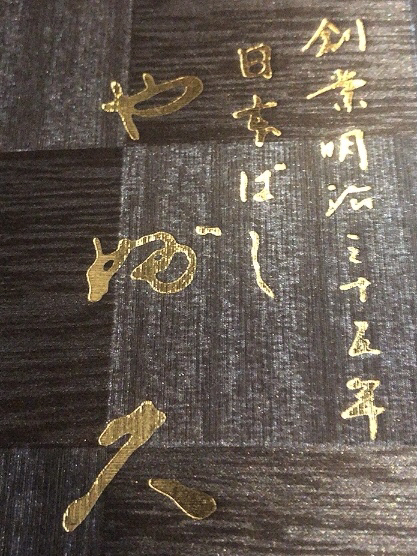 創業明治三十五年
日本ばし
やぶ久